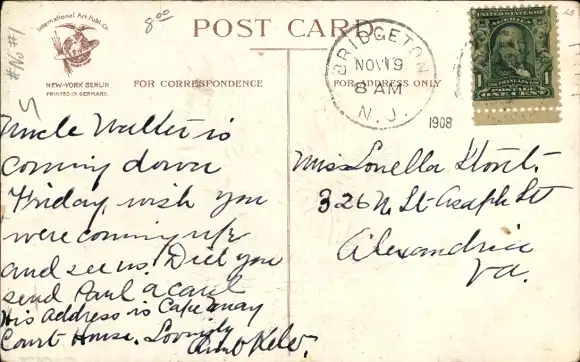 International Art Publ. Co.
NEW-YORK BERLIN
PRINTED IN GERMANY.
#No #1
8⁰⁰
POST CARD
FOR CORRESPONDENCE
FOR ADDRESS ONLY
BRIDGETON
NOV 19
8 AM
N. J.
1908
UNITED STATES OF AMERICA
1 1
FRANKLIN
POSTAGE
ONE CENT
Uncle Walter is
coming down
Friday, wish you
were coming up
and see us. Did you
send Paul a card
His address is Cape May
Court House. Lovingly
Aunt
Miss Louella
326 N. St Asaph St
Alexandria
Va.